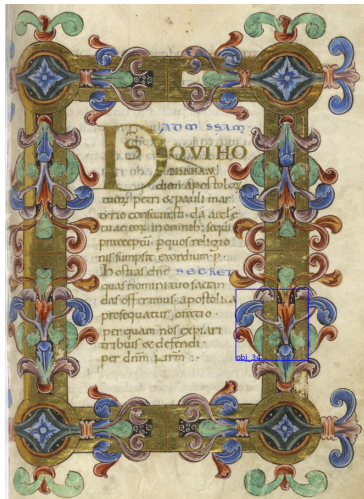 AD M SSAM
D QVI HO
diem apostolor
tuor petri & pauli mar
tirio consecrasti · da aecle
tuae eor in omnib: sequi
praeceptu p quos religio
nis sumpsit exordium p.
Hostias dne SECRET
quas nomini tuo sacran
das offerimus apostolica
prosequatur oratio
per quam nos expiari
tribuas & defendi
per dnm nrm
obj_34